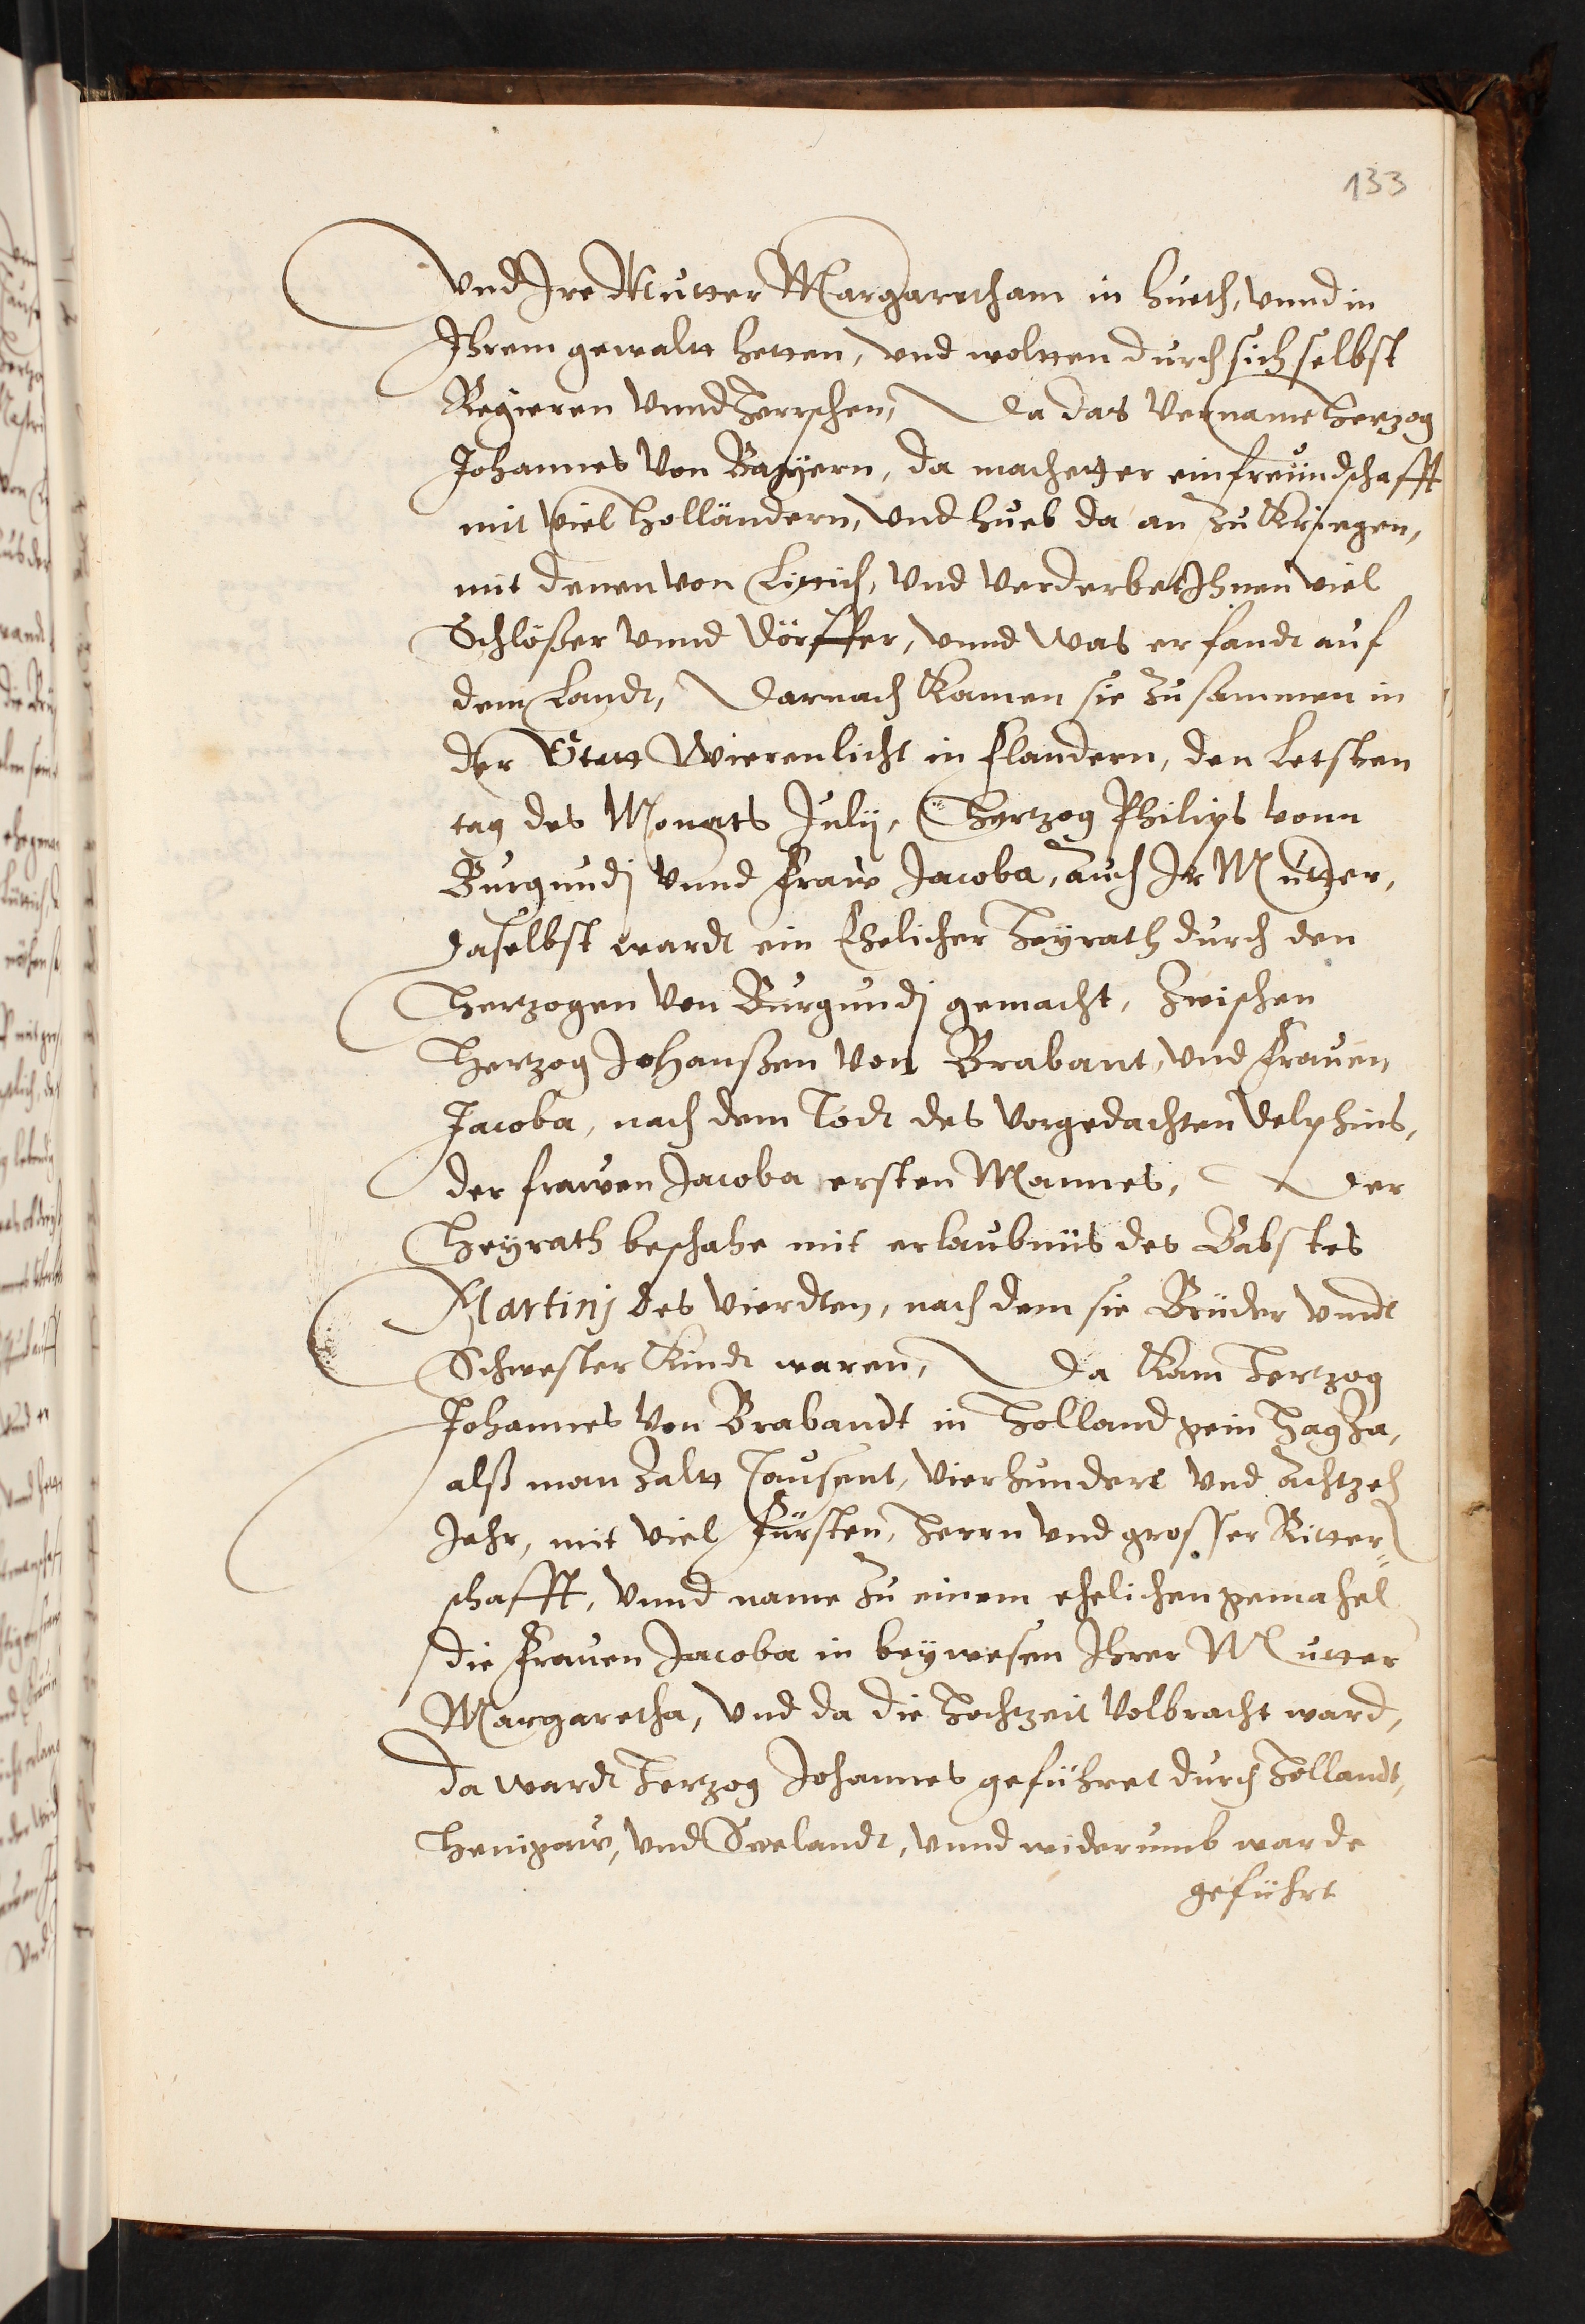 133
Vnd Ire Mutter Margaretham in hueth, vnnd in
Ihrem gewaltt hetten, vnd woltten durch sich selbst
Regieren vnnd Herrschen, Da das vername Hertzog
Johannes von Bayern, da machet er ein freündschafft
mit viel Holländern, vnd hueb da an zu Kriegen,
mit denen von Littich, vnd verderbet Ihnen viel
Schlößer vnnd Dörffer, vnnd was er fandt auf
dem Landt, Darnach Kamen sie zusammen in
der Statt Wierenlicht in Flandern, den Letsten
tag des Monats Julij, Hertzog Philips vonn
Burgundj vnnd Fraw Jacoba, auch Ir Mutter,
Daselbst wardt ein Ehelicher Heyrath durch den
Hertzogen von Burgundj gemacht, zwischen
Hertzog Johanßen von Brabant, vnd Frauen,
Jacoba, nach dem Todt des vorgedachten Delphins,
der frawen Jacoba ersten Mannes, Der
Heyrath beschahe mit erlaubnüs des Babstes
Martinj des Vierdten, nach dem sie Brüder vnndt
Schwester Kindt waren, Da Kam Hertzog
Johannes von Brabandt in Holland gein HagHa,
alß man Zaltt Tausent, Vierhundert vnd Achtzeh
Jahr, mit viel Fürsten, Herrn vnd grosser Ritter„
schafft, vnnd name zu einem ehelichen gemahel
die Frauen Jacoba in beywesen Ihrer Mutter
Margaretha, vnd da die Hochtzeit Volbracht ward,
da wardt Hertzog Johannes geführet durch Hollandt,
Henigaw, vnd Seelandt, vnnd widerumb warde
geführt